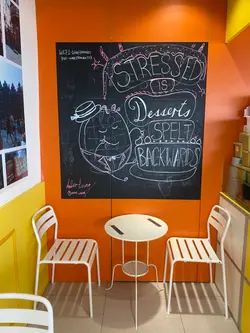 STRESSED
IS
Desserts
SPELT
BACKWARDS